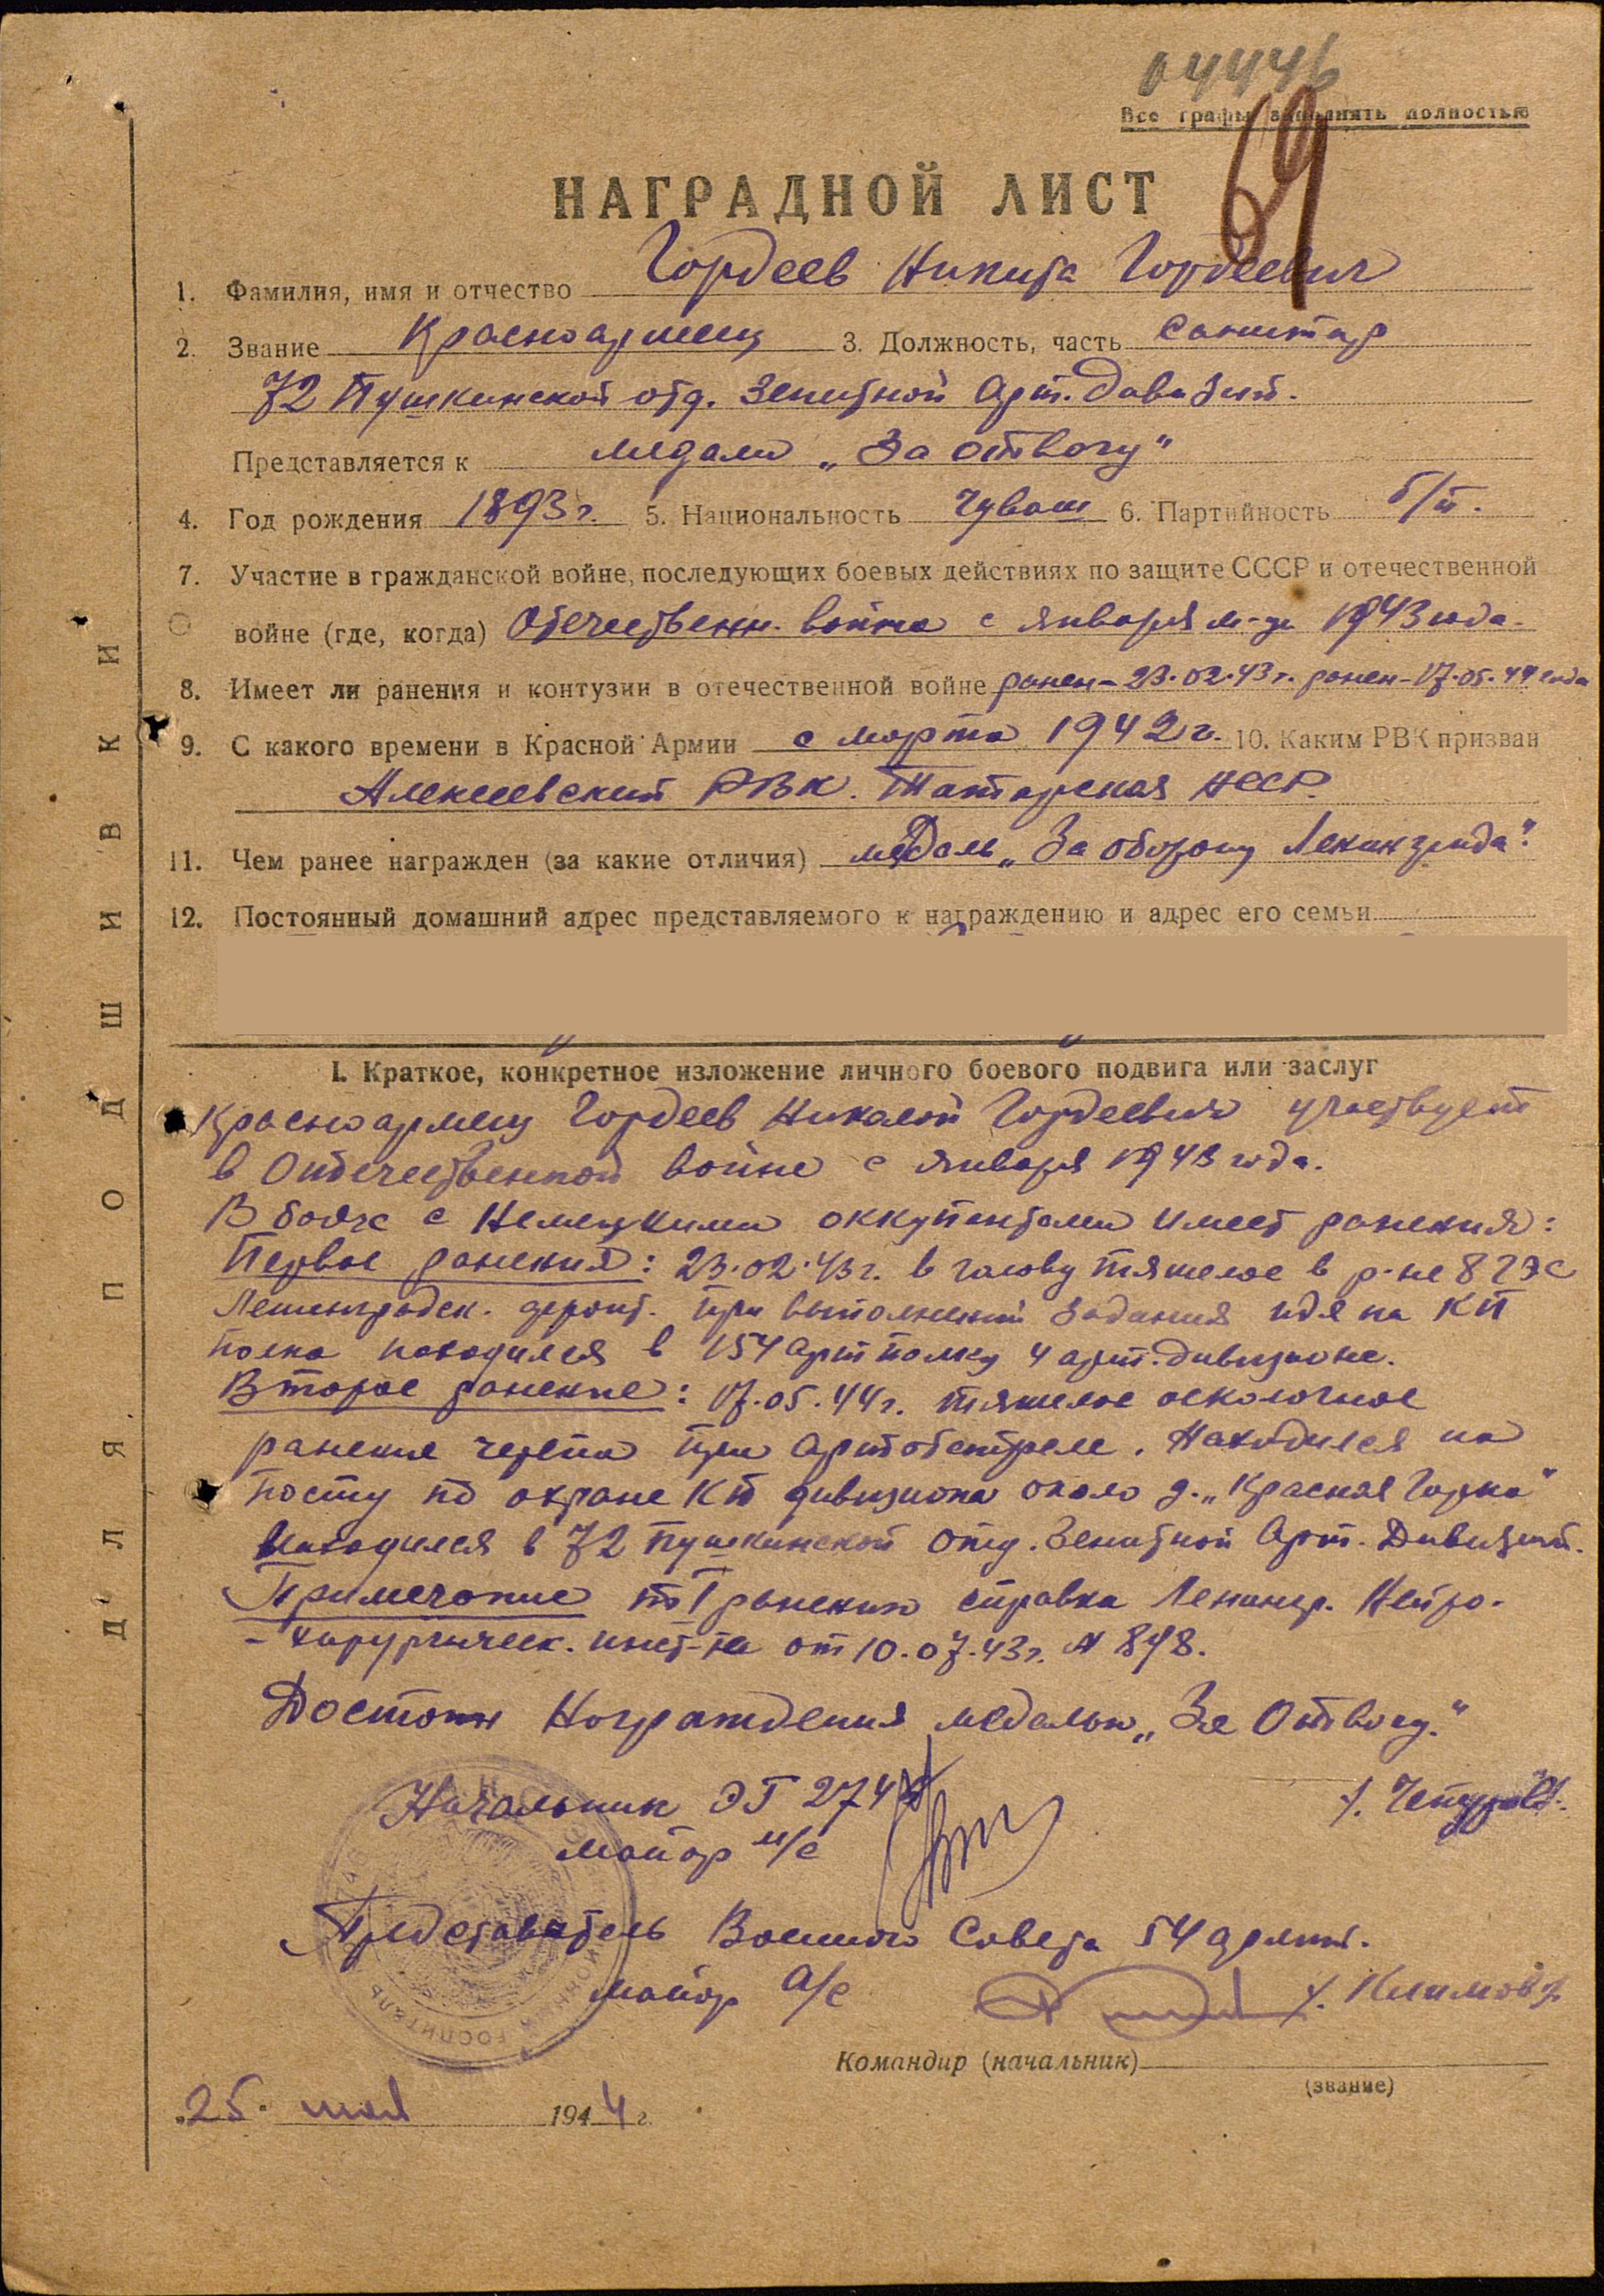 04446
Все графы заполнять полностью
69
НАГРАДНОЙ ЛИСТ
1. Фамилия, имя и отчество Гордеев Никита Гордеевич
2. Звание Красноармеец 3. Должность, часть Санитар
72 Пушкинской отд. Зенитной Арт. Дивизии.
Представляется к медали „За отвагу"
4. Год рождения 1893 г. 5. Национальность Чуваш 6. Партийность б/п.
7. Участие в гражданской войне, последующих боевых действиях по защите СССР и отечественной
войне (где, когда) Отечественн. война с января м-ца 1943 года.
8. Имеет ли ранения и контузии в отечественной войне ранен - 23.02.43 г. ранен - 17.05.44 года
9. С какого времени в Красной Армии с марта 1942 г. 10. Каким РВК призван
Алексеевский РВК. Татарская АССР.
11. Чем ранее награжден (за какие отличия) медаль „За оборону Ленинграда".
12. Постоянный домашний адрес представляемого к награждению и адрес его семьи
I. Краткое, конкретное изложение личного боевого подвига или заслуг
Красноармеец Гордеев Николай Гордеевич участвует
в Отечественной войне с января 1943 года.
В боях с Немецкими оккупантами имеет ранения:
Первое ранения: 23.02.43 г. в голову тяжелое в р-не 8 ГЭС
Ленинградск. фронт. при выполнении задания идя на КП
полка находился в 154 арт полку 4 арт. дивизионе.
Второе ранение: 17.05.44 г. тяжелое осколочное
ранение черепа при Артобстреле. Находился на
посту по охране КП дивизиона около д. „Красная Горка"
Находился в 72 Пушкинской отд. Зенитной Арт. Дивизии.
Примечание I ранении справка Ленингр. Нейро-
-хирургическ. инст-та от 10.07.43 г. № 898.
Достоин Награждения медалью „За Отвагу."
Начальник ЭГ 2748
майор м/с
Представитель Военного Совета 54 армии.
майор а/с /. Климов /.
Командир (начальник)
(звание)
„25" мая 1944 г.
ДЛЯ ПОДШИВКИ